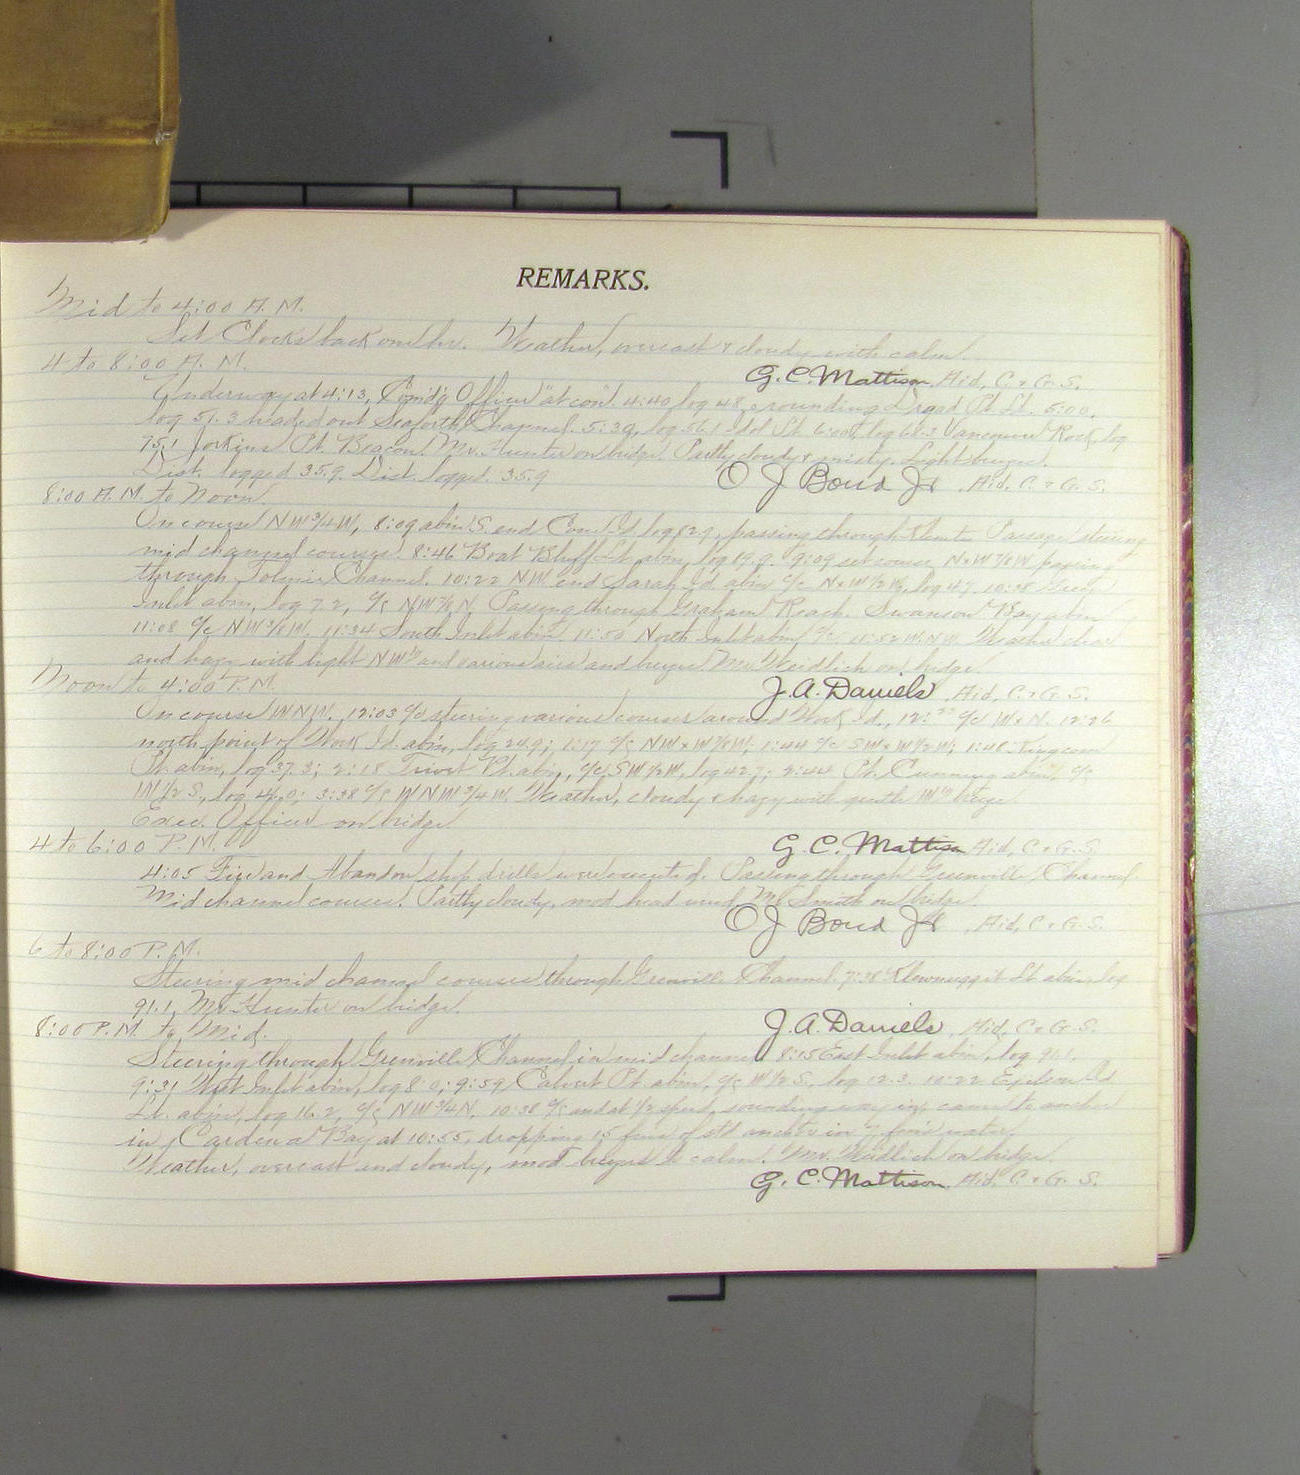 REMARKS.
Mid to 4:00 A.M.
Set Clocks back one hr. Weather, overcast & cloudy with calm.
4 to 8:00 A.M.
G. C. Mattison, Aid, C. & G. S.
Underway at 4:13, Com'd'g Officer "at con". 4:40 log 48, rounding Dryad Pt. Lt. 5:00,
log 51.3 headed out Seaforth Channel. 5:39, log 56.1 Idol Pt. 6:00, log 62.3 Vancouver Rock, log
75.1 Jorkins Pt. Beacon. Mr. Hunter on bridge. Partly cloudy & misty. Light breeze.
Dist. logged 35.9. Dist. logged 35.9
O J Bond Jr, Aid, C. & G. S.
8:00 A.M. to Noon
On course NW 3/4 W, 8:09 abm. S. end Cone Id. log 82.9, passing through Klemtu Passage steering
mid channel courses. 8:46 Boat Bluff Lt. abm, log 19.9. 9:09 set course N×W 7/8 W passing
through Tolmie Channel. 10:22 NW end Sarah Id. abm c/c N×W 1/2 W, log 4.7, 10:38
Inlet abm, log 7.2, c/c NW 7/8 N, Passing through Graham Reach. Swanson Bay abm
11:08 c/c NW 3/8 W. 11:34 South Inlet abm 11:50 North Inlet abm, c/c 11:52 WNW. Weather clear
and hazy with light NW'ly and various airs and breezes. Mr. Weidlich on bridge.
Noon to 4:00 P.M.
J. A. Daniels, Aid, C. & G. S.
On course WNW. 12:03 c/c steering various courses around Work Id., 12:22 c/c W×N. 12:26
north point of Work Id. abm, log 24.9; 1:17 c/c NW×W 7/8 W; 1:44 c/c SW×W 1/2 W; 1:48 Kingcome
Pt. abm, log 37.3; 2:18 Trivet Pt. abm, c/c SW 1/2 W, log 42.7; 2:44 Pt. Cumming abm, c/c
W 1/2 S., log; 3:38 c/c WNW 3/4 W. Weather, cloudy & hazy with gentle W'ly breeze.
Exec. Officer on bridge.
4 to 6:00 P.M.
G. C. Mattison Aid, C. & G. S.
4:05 Fire and Abandon ship drills were executed. Passing through Grenville Channel.
Mid channel courses. Partly cloudy, mod. head wind. Mr. Smith on bridge.
O J Bond Jr, Aid, C. & G. S.
6 to 8:00 P.M.
Steering mid channel courses through Grenville Channel. 7:38 Klewnuggit Lt abm, log
91.1, Mr. Hunter on bridge.
8:00 P.M. to Mid.
J. A. Daniels, Aid, C. & G. S.
Steering through Grenville Channel in mid channel 8:15 East Inlet abm, log
9:31 West Inlet abm, log 8.0; 9:59 Calvert Pt. abm, c/c W 1/2 S, log 12.3, 10:22 Id
Lt. abm, log 16.2, c/c NW 3/4 N. 10:38 c/c and at 1/2 speed, sounding way in, came to anchor
in Bay at 10:55, dropping 15 fms of stb anchor in 7 fms water.
Weather, overcast and cloudy, mod. breezes to calm. Mr. Weidlich on bridge.
G. C. Mattison, Aid, C. & G. S.